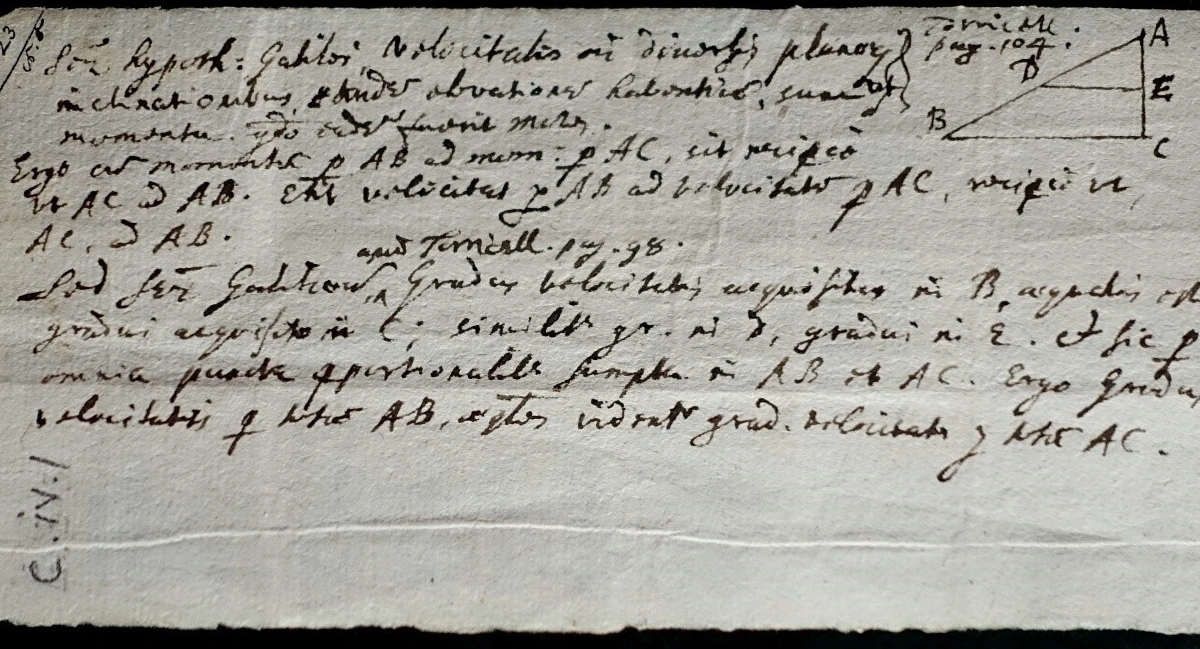 23
Torricell.
Secū hypoth: Galilei, Velocitates in diversis planorū
pag. 104.
inclinationibus, eandē elevationē habentiū, sunt ut
momenta. qdo eadē fuerit moles.
Ergo cū momentū p AB ad mom: p AC, sit recipcè
ut AC ad AB. Erit velocitas p AB ad velocitatē p AC, recipcè ut
AC, ad AB.
apud Torricell. pag. 98.
Sed secū Galileum, Gradus velocitatis acquisitus in B, aequalis est
gradui acquisito in C; similitr gr. in D, gradui in E. et sic p
omnia puncta pportionalitr sumpta in AB et AC. Ergo Gradus
velocitatis p totā AB, aeqles videntr grad. velocitatis p totā AC.
A
D
E
B
C
C. iv. 1